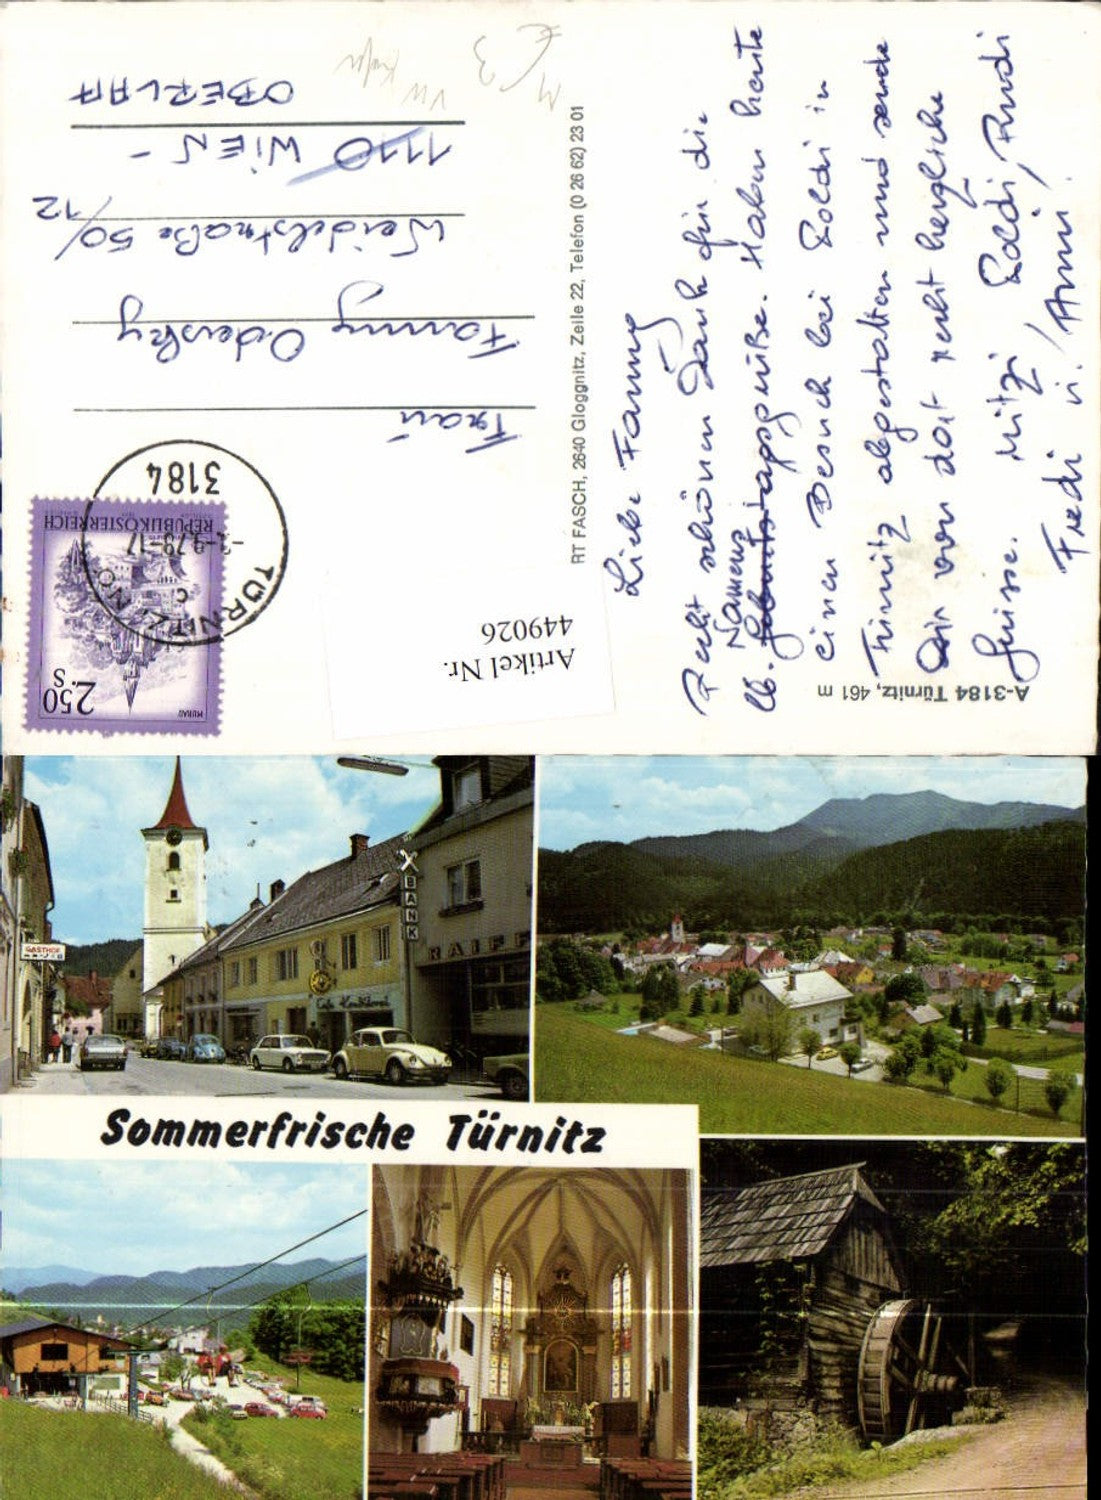 Liebe Fanny
Recht schönen Dank für die
Namens
lb. Geburtstagsgrüße. Haben heute
einen Besuch bei Poldi in
Türnitz abgestatten und sende
Dir von dort recht herzliche
Grüsse. Mitzi, Poldi, Rudi
Fredi u. Anni.
A-3184 Türnitz, 461 m
RT FASCH, 2640 Gloggnitz, Zeile 22, Telefon (0 26 62) 23 01
Artikel Nr.
449026
MURAU
2.50
S
REPUBLIK ÖSTERREICH
3184
TÜRNITZ, NÖ
c
Frau
Fanny Odersky
Weidelstraße 50/
/12
1110 WIEN -
OBERLAA
VW Käfer
M
€ 3
GASTHOF
BANK
RAIFF
Sommerfrische Türnitz